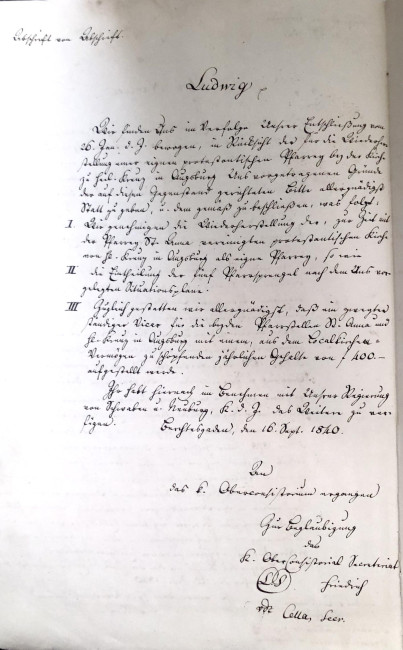 Abschrift von Abschrift.
Ludwig
Wir finden Uns im Verfolge Unsrer Entschließung vom
26. Jan. d. J. bewogen, in Rücksicht der für die Wiederher-
stellung einer eignen protestantischen Pfarrey bey der Kirche
zu heil. Kreuz in Augsburg Uns vorgetragenen Gründe
der auf diesen Gegenstand gerichteten Bitte allergnädigst
Statt zu geben, u. dem gemäß zu beschließen, was folgt,
I Wir genehmigen die Wiederherstellung der, zur Zeit mit
der Pfarrey St. Anna vereinigten protestantischen Kirche
von hl. Kreuz in Augsburg als eigne Pfarrey, so wie
II die Eintheilung der fünf Pfarrsprengel nach dem Uns vor-
gelegten Situationsplane.
III Zugleich gestatten wir allergnädigst, daß ein
ständiger Vicar für die beyden Pfarrstellen St. Anna und
hl. Kreuz in Augsburg mit einem, aus dem Localkirchen-
Vermögen zu schöpfenden jährlichen Gehalte von f 400.–
aufgestellt werde.
Ihr habt hiernach im Benehmen mit Unsrer Regierung
von Schwaben u. Neuburg, K. d. J. das Weitere zu ver-
fügen. Berchtesgaden, den 16. Sept. 1840.
An
das k. Oberconsistorium ergangen
Zur Beglaubigung
das
K. Oberconsistorial Secretariat
(LS) Friedrich
vdt Cella, Secr.